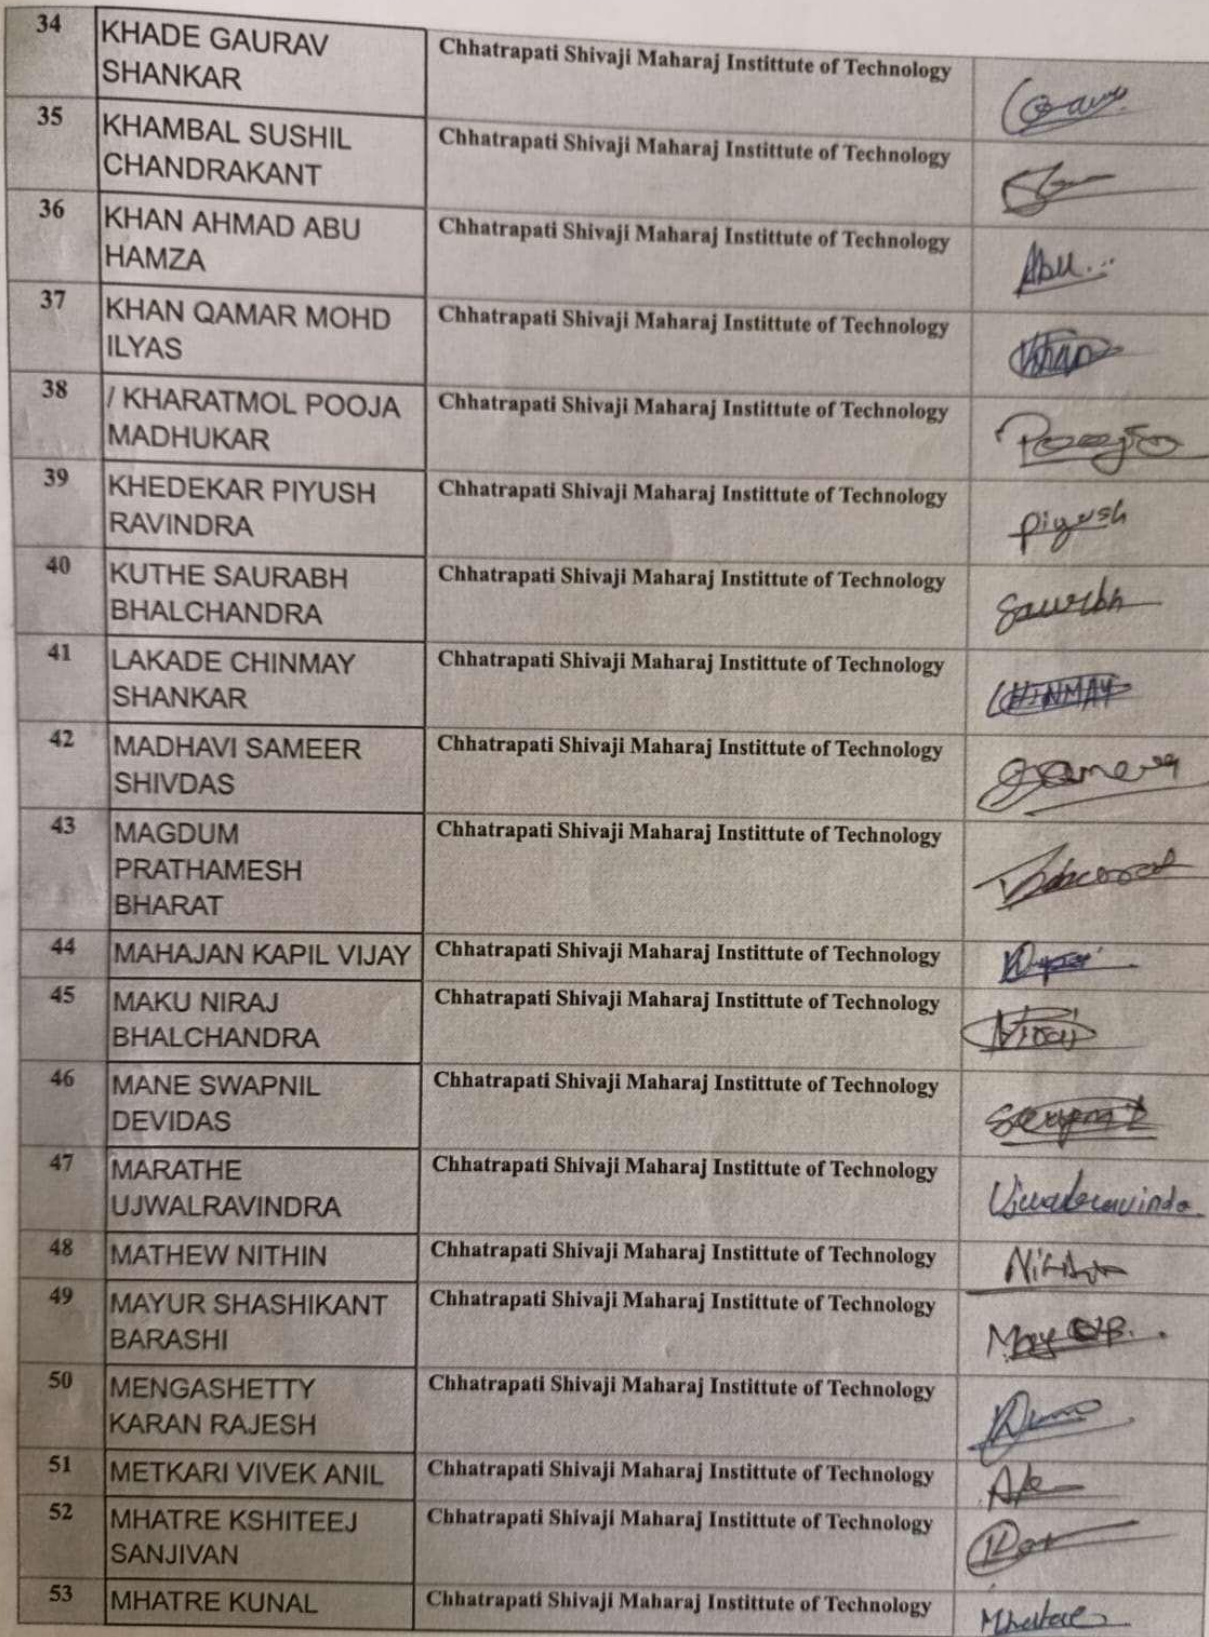 34 KHADE GAURAV Chhatrapati Shivaji Maharaj Instittute of Technology
SHANKAR
35 KHAMBAL SUSHIL Chhatrapati Shivaji Maharaj Instittute of Technology
CHANDRAKANT
36 KHAN AHMAD ABU Chhatrapati Shivaji Maharaj Instittute of Technology
HAMZA Abu...
37 KHAN QAMAR MOHD Chhatrapati Shivaji Maharaj Instittute of Technology
ILYAS Khan
38 / KHARATMOL POOJA Chhatrapati Shivaji Maharaj Instittute of Technology
MADHUKAR Pooja
39 KHEDEKAR PIYUSH Chhatrapati Shivaji Maharaj Instittute of Technology
RAVINDRA Piyush
40 KUTHE SAURABH Chhatrapati Shivaji Maharaj Instittute of Technology
BHALCHANDRA
41 LAKADE CHINMAY Chhatrapati Shivaji Maharaj Instittute of Technology
SHANKAR CHINMAY
42 MADHAVI SAMEER Chhatrapati Shivaji Maharaj Instittute of Technology
SHIVDAS
43 MAGDUM Chhatrapati Shivaji Maharaj Instittute of Technology
PRATHAMESH
BHARAT
44 MAHAJAN KAPIL VIJAY Chhatrapati Shivaji Maharaj Instittute of Technology
45 MAKU NIRAJ Chhatrapati Shivaji Maharaj Instittute of Technology
BHALCHANDRA Niraj
46 MANE SWAPNIL Chhatrapati Shivaji Maharaj Instittute of Technology
DEVIDAS
47 MARATHE Chhatrapati Shivaji Maharaj Instittute of Technology
UJWALRAVINDRA
48 MATHEW NITHIN Chhatrapati Shivaji Maharaj Instittute of Technology
49 MAYUR SHASHIKANT Chhatrapati Shivaji Maharaj Instittute of Technology
BARASHI
50 MENGASHETTY Chhatrapati Shivaji Maharaj Instittute of Technology
KARAN RAJESH
51 METKARI VIVEK ANIL Chhatrapati Shivaji Maharaj Instittute of Technology
52 MHATRE KSHITEEJ Chhatrapati Shivaji Maharaj Instittute of Technology
SANJIVAN
53 MHATRE KUNAL Chhatrapati Shivaji Maharaj Instittute of Technology